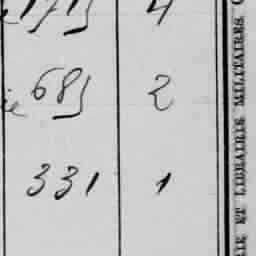 171] 4
68] 2
331 1
RIE ET LIBRAIRIE MILITAIRES.